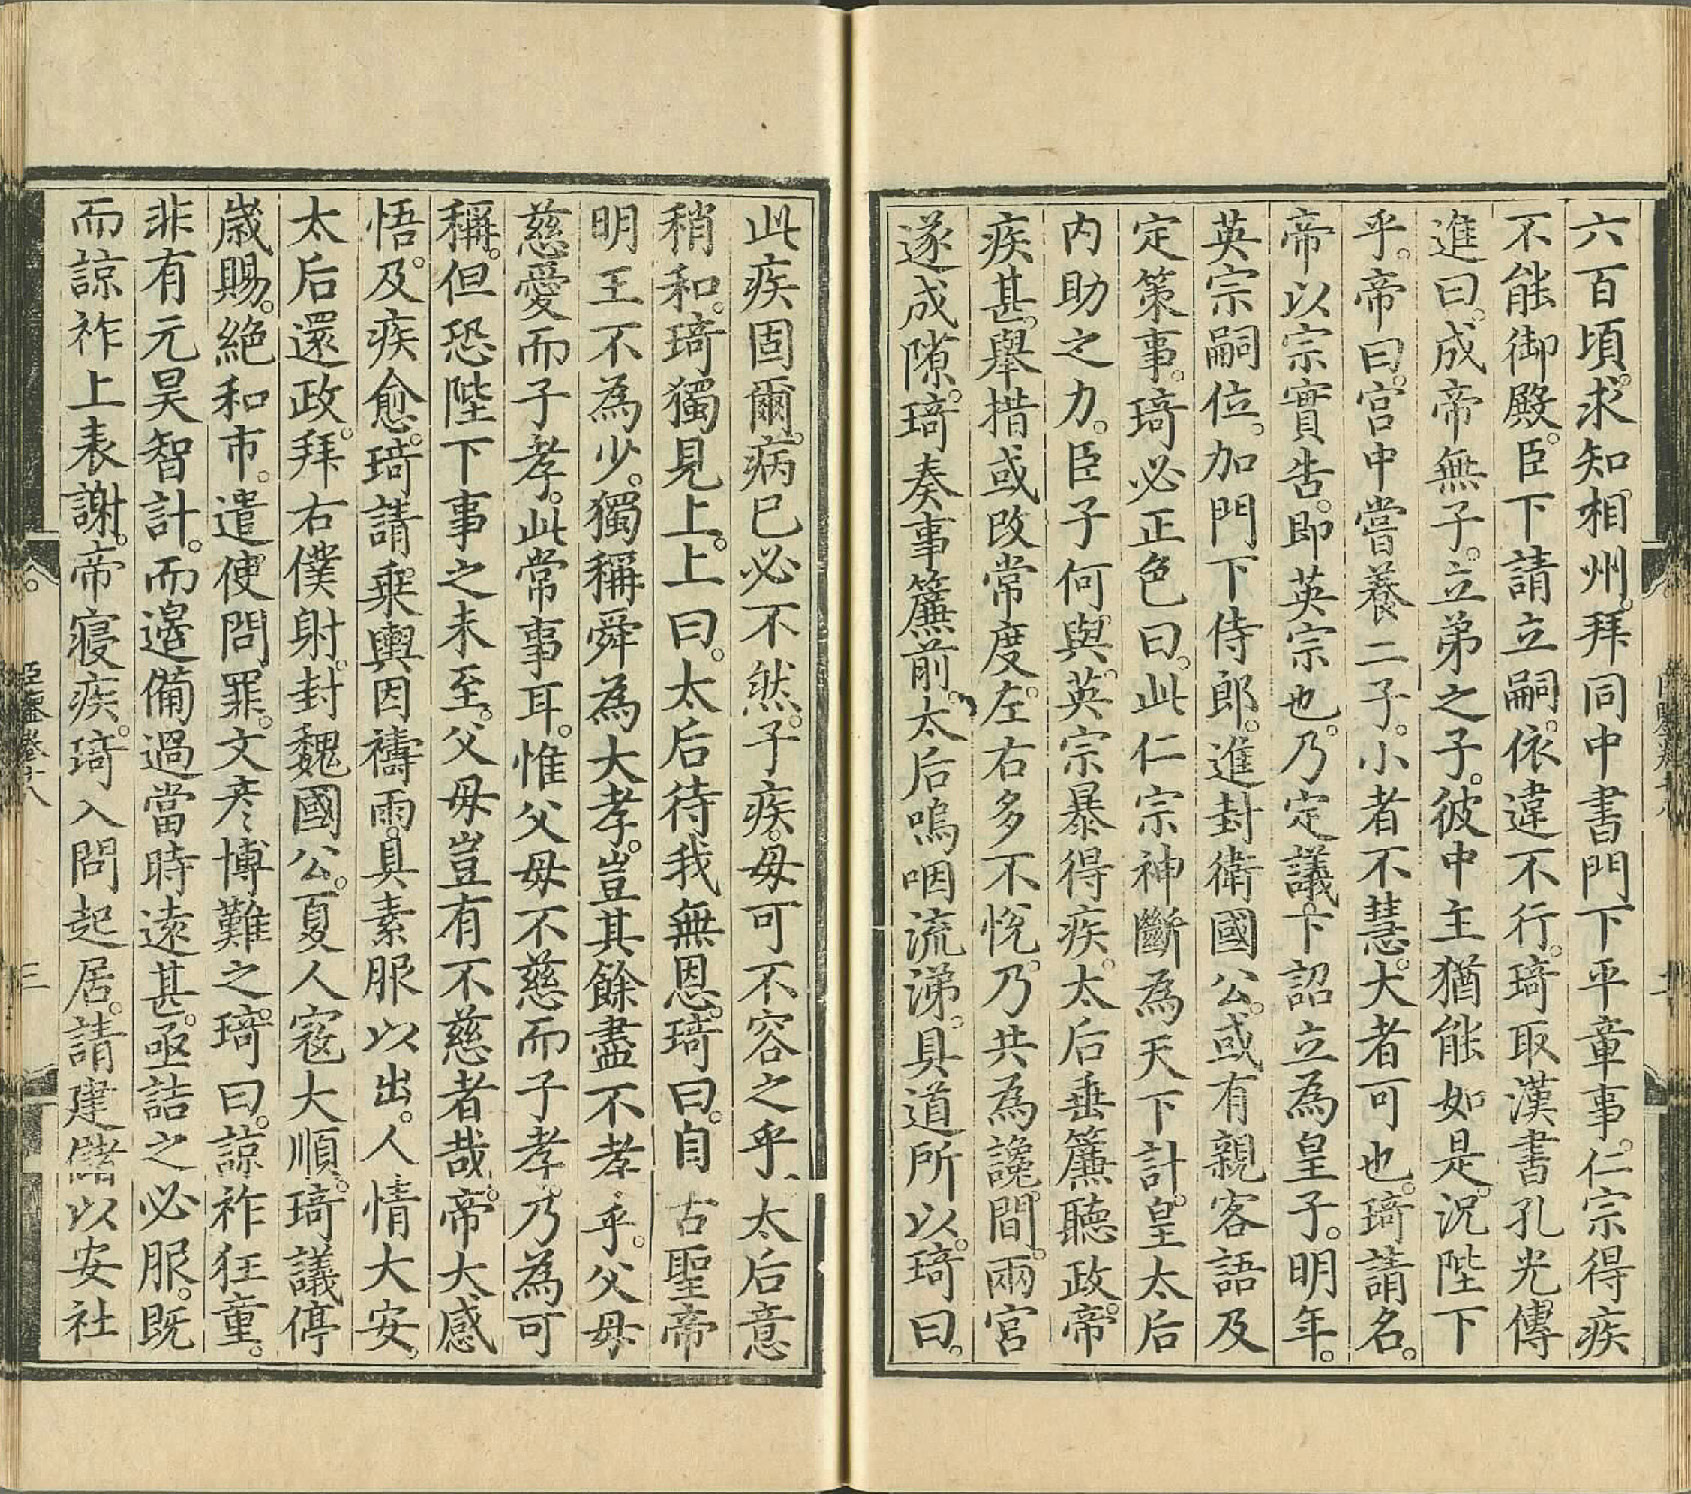 六百頃。求知相州。拜同中書門下平章事。仁宗得疾
不能御殿。臣下請立嗣。依違不行。琦取漢書孔光傳
進曰。成帝無子。立弟之子。彼中主猶能如是。況陛下
乎。帝曰。宮中嘗養二子。小者不慧。大者可也。琦請名。
帝以宗實告。即英宗也。乃定議。下詔立為皇子。明年。
英宗嗣位。加門下侍郎。進封衛國公。或有親客語及
定策事。琦必正色曰。此仁宗神斷為天下計。皇太后
内助之力。臣子何與。英宗暴得疾。太后垂簾聽政。帝
疾甚。舉措或改常度。左右多不悅。乃共為讒間。兩宮
遂成隙。琦奏事簾前。太后嗚咽流涕。具道所以。琦曰。
此疾固爾。病已必不然。子疾。母可不容之乎。太后意
稍和。琦獨見上。上曰。太后待我無恩。琦曰。自古聖帝
明王不為少。獨稱舜為大孝。豈其餘盡不孝乎。父母
慈愛而子孝。此常事耳。惟父母不慈而子孝。乃為可
稱。但恐陛下事之未至。父母豈有不慈者哉。帝大感
悟。及疾愈。琦請乘輿因禱雨。具素服以出。人情大安。
太后還政。拜右僕射。封魏國公。夏人寇大順。琦議停
歲賜。絶和市。遣使問罪。文彥博難之。琦曰。諒祚狂童。
非有元昊智計。而邊備過當時遠甚。亟詰之必服。既
而諒祚上表謝。帝寢疾。琦入問起居。請建儲以安社
三